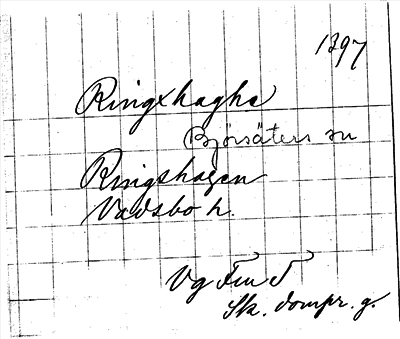 1397
Ringxhagha
Björsäters sn
Ringshagen
Vadsbo h.
Vg Fu
Sk. dompr. g.